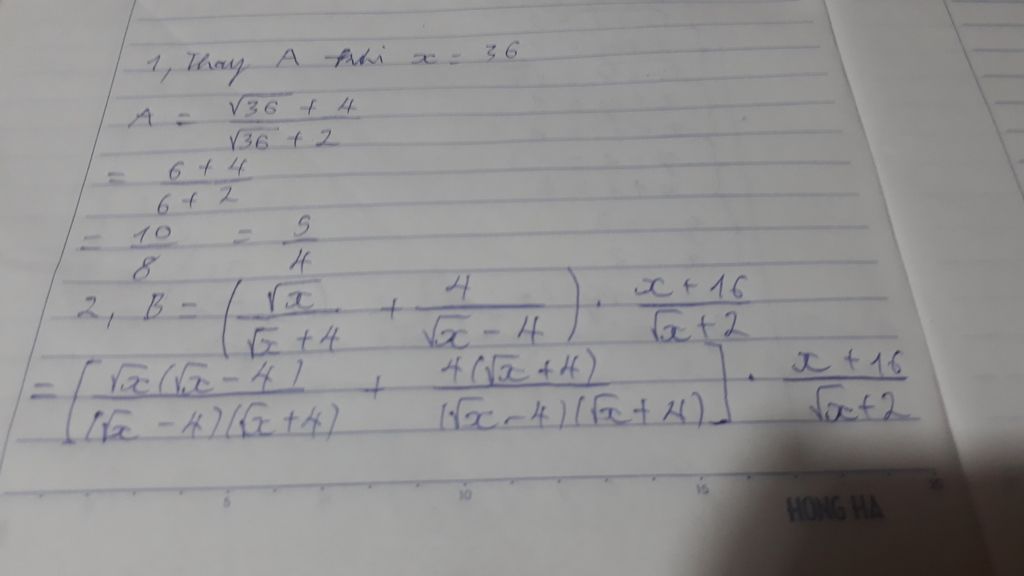 1, Thay A khi x = 36
A = (√36 + 4)/(√36 + 2)
= (6 + 4)/(6 + 2)
= 10/8 = 5/4
2, B = (√x/(√x + 4) + 4/(√x - 4)) . (x + 16)/(√x + 2)
= [√x(√x - 4)/((√x - 4)(√x + 4)) + 4(√x + 4)/((√x - 4)(√x + 4))] . (x + 16)/(√x + 2)
5 10 15 20
HONG HA